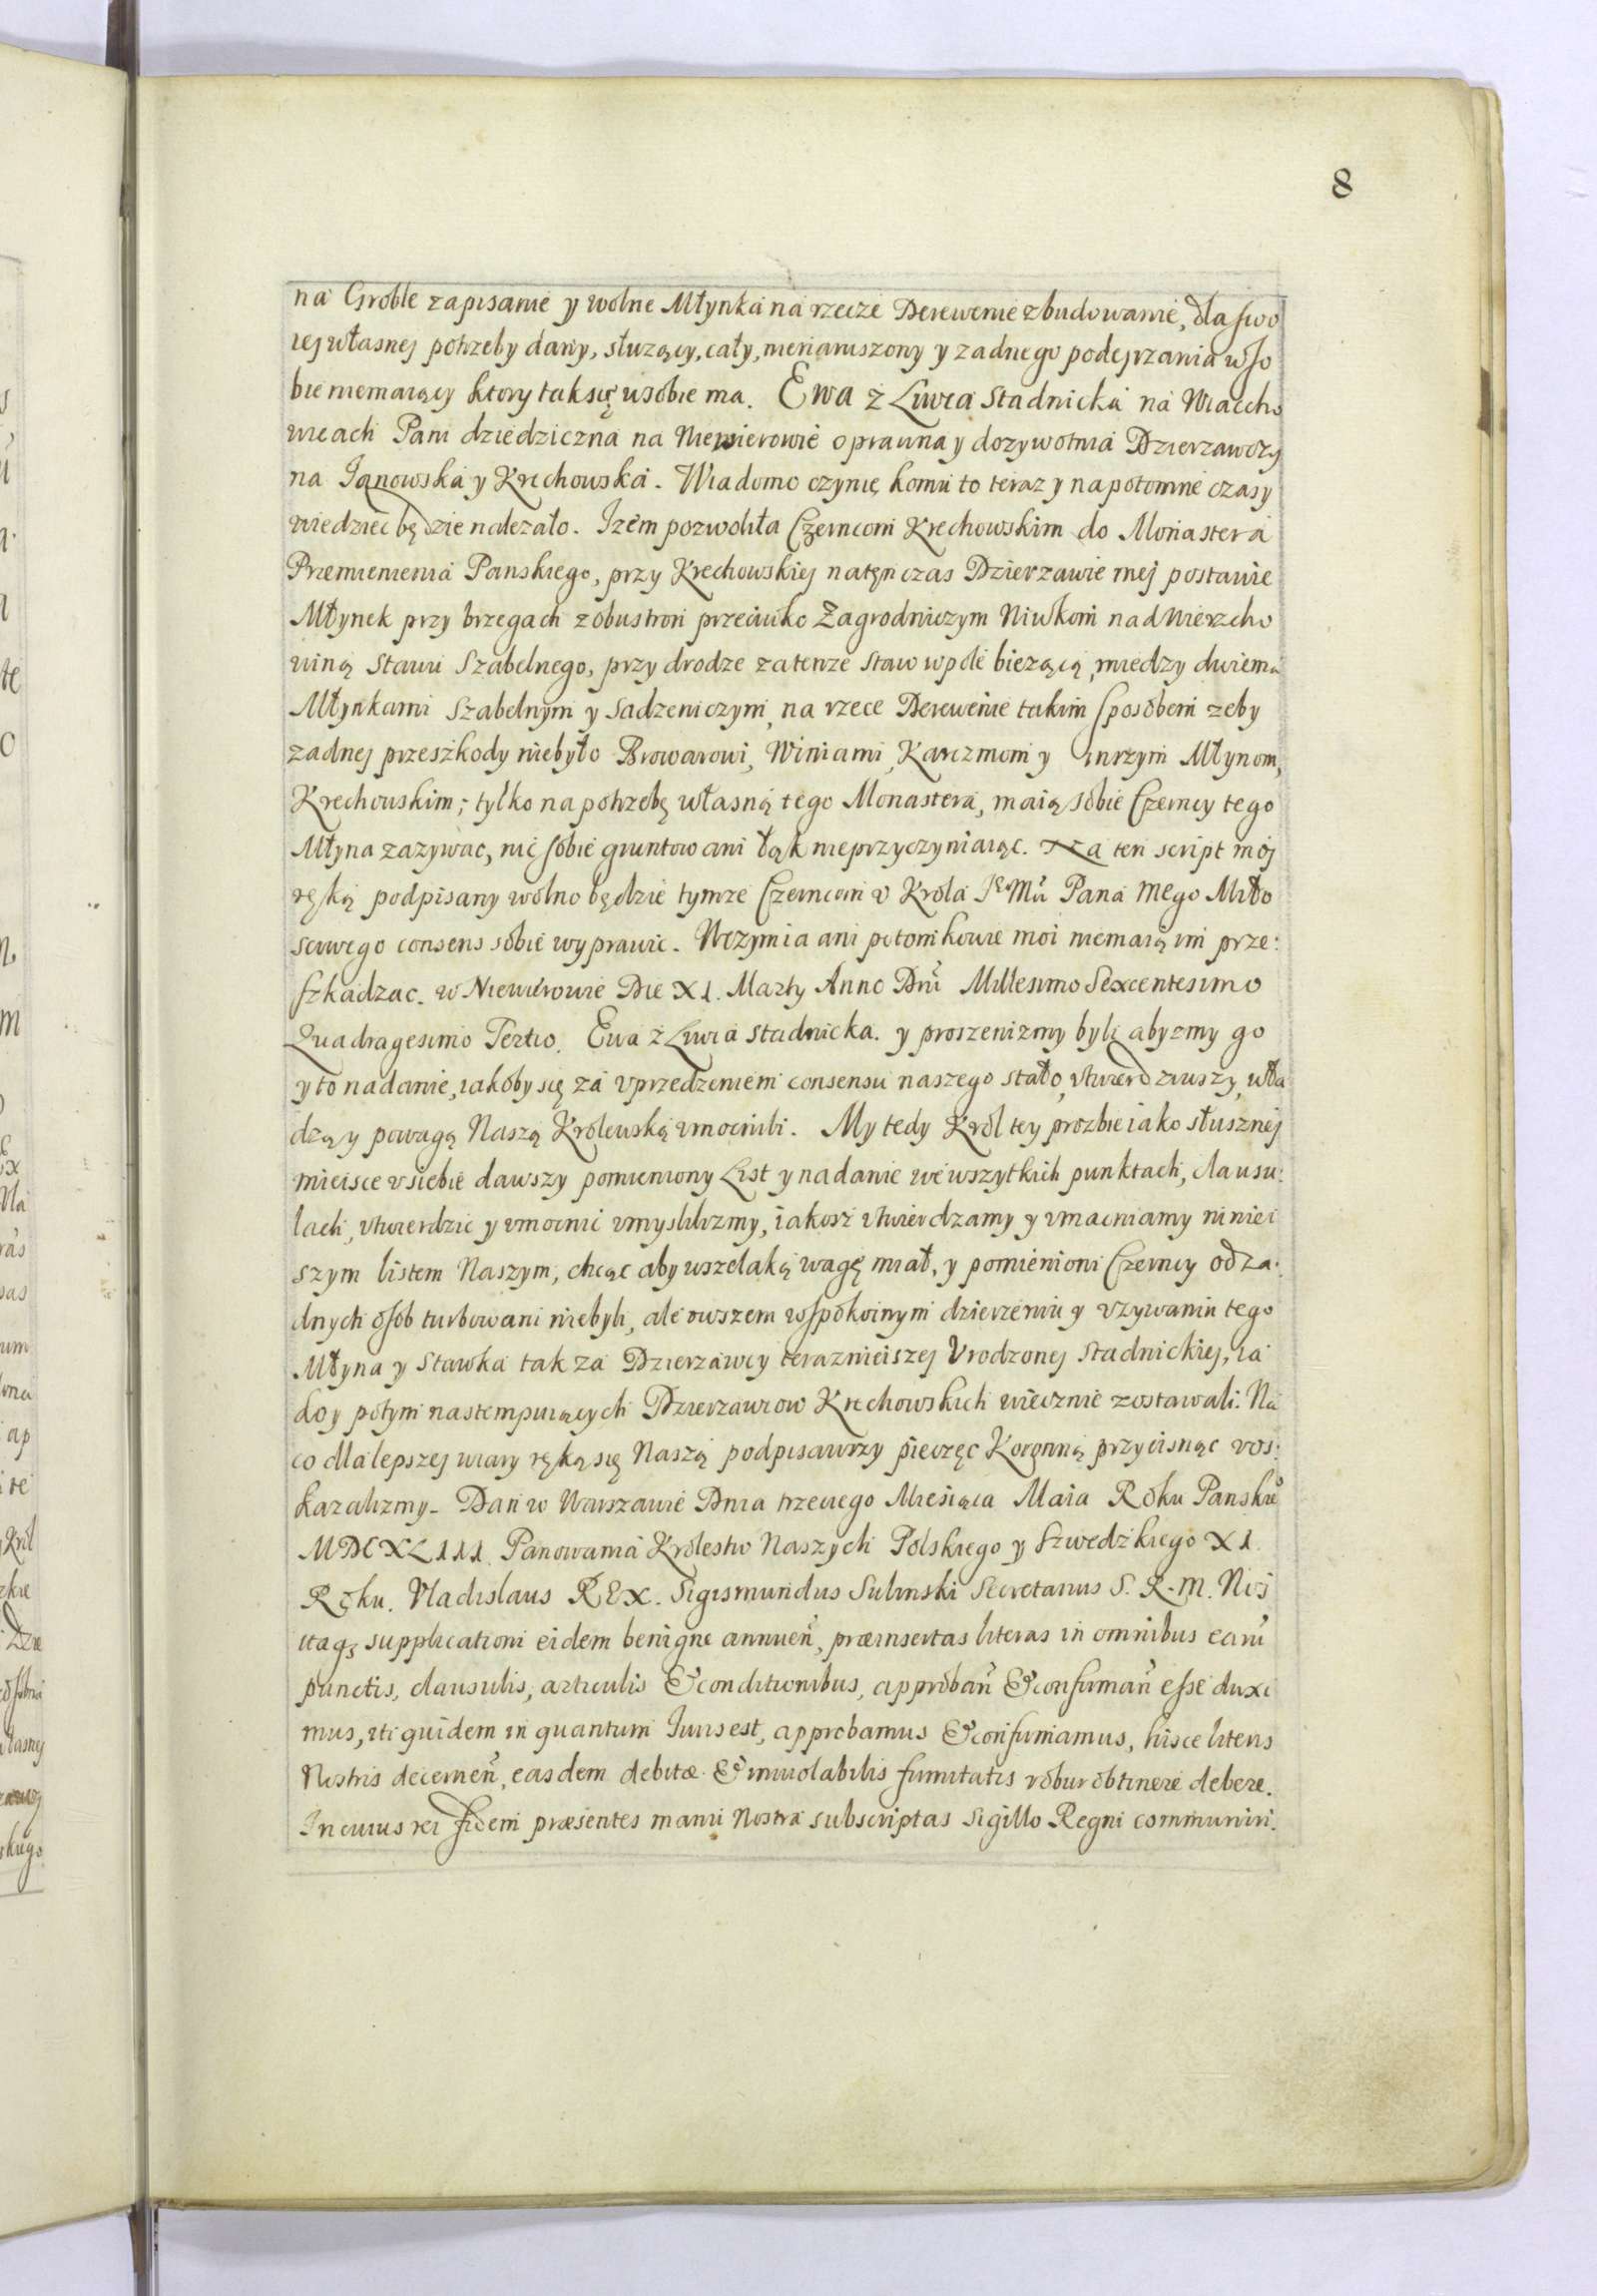 8
na Groble zapisanie y wolne Młynka na rzecze Derewenie zbudowanie, dla swo
iej własnej potrzeby dany, słuzący, cały, nienaruszony y zadnego podejrzania w so
bie niemaiący ktory tak się w sobie ma. Ewa z Liwia Stadnicka na Wiaecho
wicach Pani dziedziczna na Niemierowie oprawna y dozywotnia Dzierzawczy
na Ianowska y Krechowska. Wiadomo czynię komu to teraz y napotomne czasy
wiedziec będzie nalezało. Izem pozwoliła Czerncom Krechowskim do Monastera
Przemienienia Panskiego, przy Krechowskiej natęn czas Dzierzawie mej postawie
Młynek przy brzegach z obu stron przeciwko Zagrodniczym Niwkom nad Wierzcho
winą Stawu Szabelnego, przy drodze za tenze staw w pole biezącą, miedzy dwiema
Młynkami Szabelnym y Sadzeniczym, na rzece Derewenie takim sposobem zeby
zadnej przeszkody niebyło Browarowi, Winiami, Karczmom y inszym Młynom,
Krechowskim; tylko na potrzebę własną tego Monastera, maią sobie Czerncy tego
Młyna zazywac, nic sobie gruntow ani łąk nieprzyczyniaiąc. Na ten script mój
ręką podpisany wolno będzie tymze Czerncom v Krola Je Mci Pana mego Miło
sciwego consens sobie wyprawic. W czym ia ani potomkowie moi niemaią im prze:
szkadzac. w Niemirowie Die XI. Marty Anno Dni Millesimo Sexcentesimo
Quadragesimo Tertio. Ewa z Liwia Stadnicka. y proszenizmy byli abyzmy go
y to nadanie, iakoby się za vprzedzeniem consensu naszego stało, vtwierdziwszy, wła
dzą y powagą Naszą Krolewską vmocnili. My tedy Krol tey prozbie iako słusznej
mieisce v siebie dawszy pomieniony List y nadanie we wszytkich punktach, clausu:
lach, vtwierdzic y vmocnic vmyslilizmy, iakosz vtwierdzamy y vmacniamy niniei
szym listem Naszym, chcąc aby wszelaką wagę miał, y pomienioni Czerncy od za:
dnych osob turbowani niebyli, ale owszem w spokoinym dzierzeniu y vzywaniu tego
Młyna y Stawka tak za Dzierzawcy terazniejszej Vrodzonej Stadnickiej, ia
ko y potym nastempuiących Dzierzawcow Krechowskich wiecznie zostawali. Na
co dla lepszej wiary ręką się Naszą podpisawszy pieczęc Koronną przycisnąc ros:
kazalizmy. Dan w Warszawie Dnia trzeciego Miesiąca Maia Roku Panskieo
MDCXLIII. Panowania Krolestw Naszych Polskiego y Szwedzkiego XI.
Roku. Vladislaus REX. Sigismundus Sulinski Secretarius S. R. M. Nos
itaq; supplicationi eidem benigne annuen, præinsertas literas in omnibus earu
punctis, clausulis, articulis & conditionibus, approban & confirman esse duxi
mus, iti quidem in quantum Iuris est, approbamus & confirmamus, hisce literis
Nostris decernen, easdem debitæ & inuiolabilis firmitatis robur obtinere debere.
In cuius rei fidem præsentes manu Nostra subscriptas Sigillo Regni communiri.